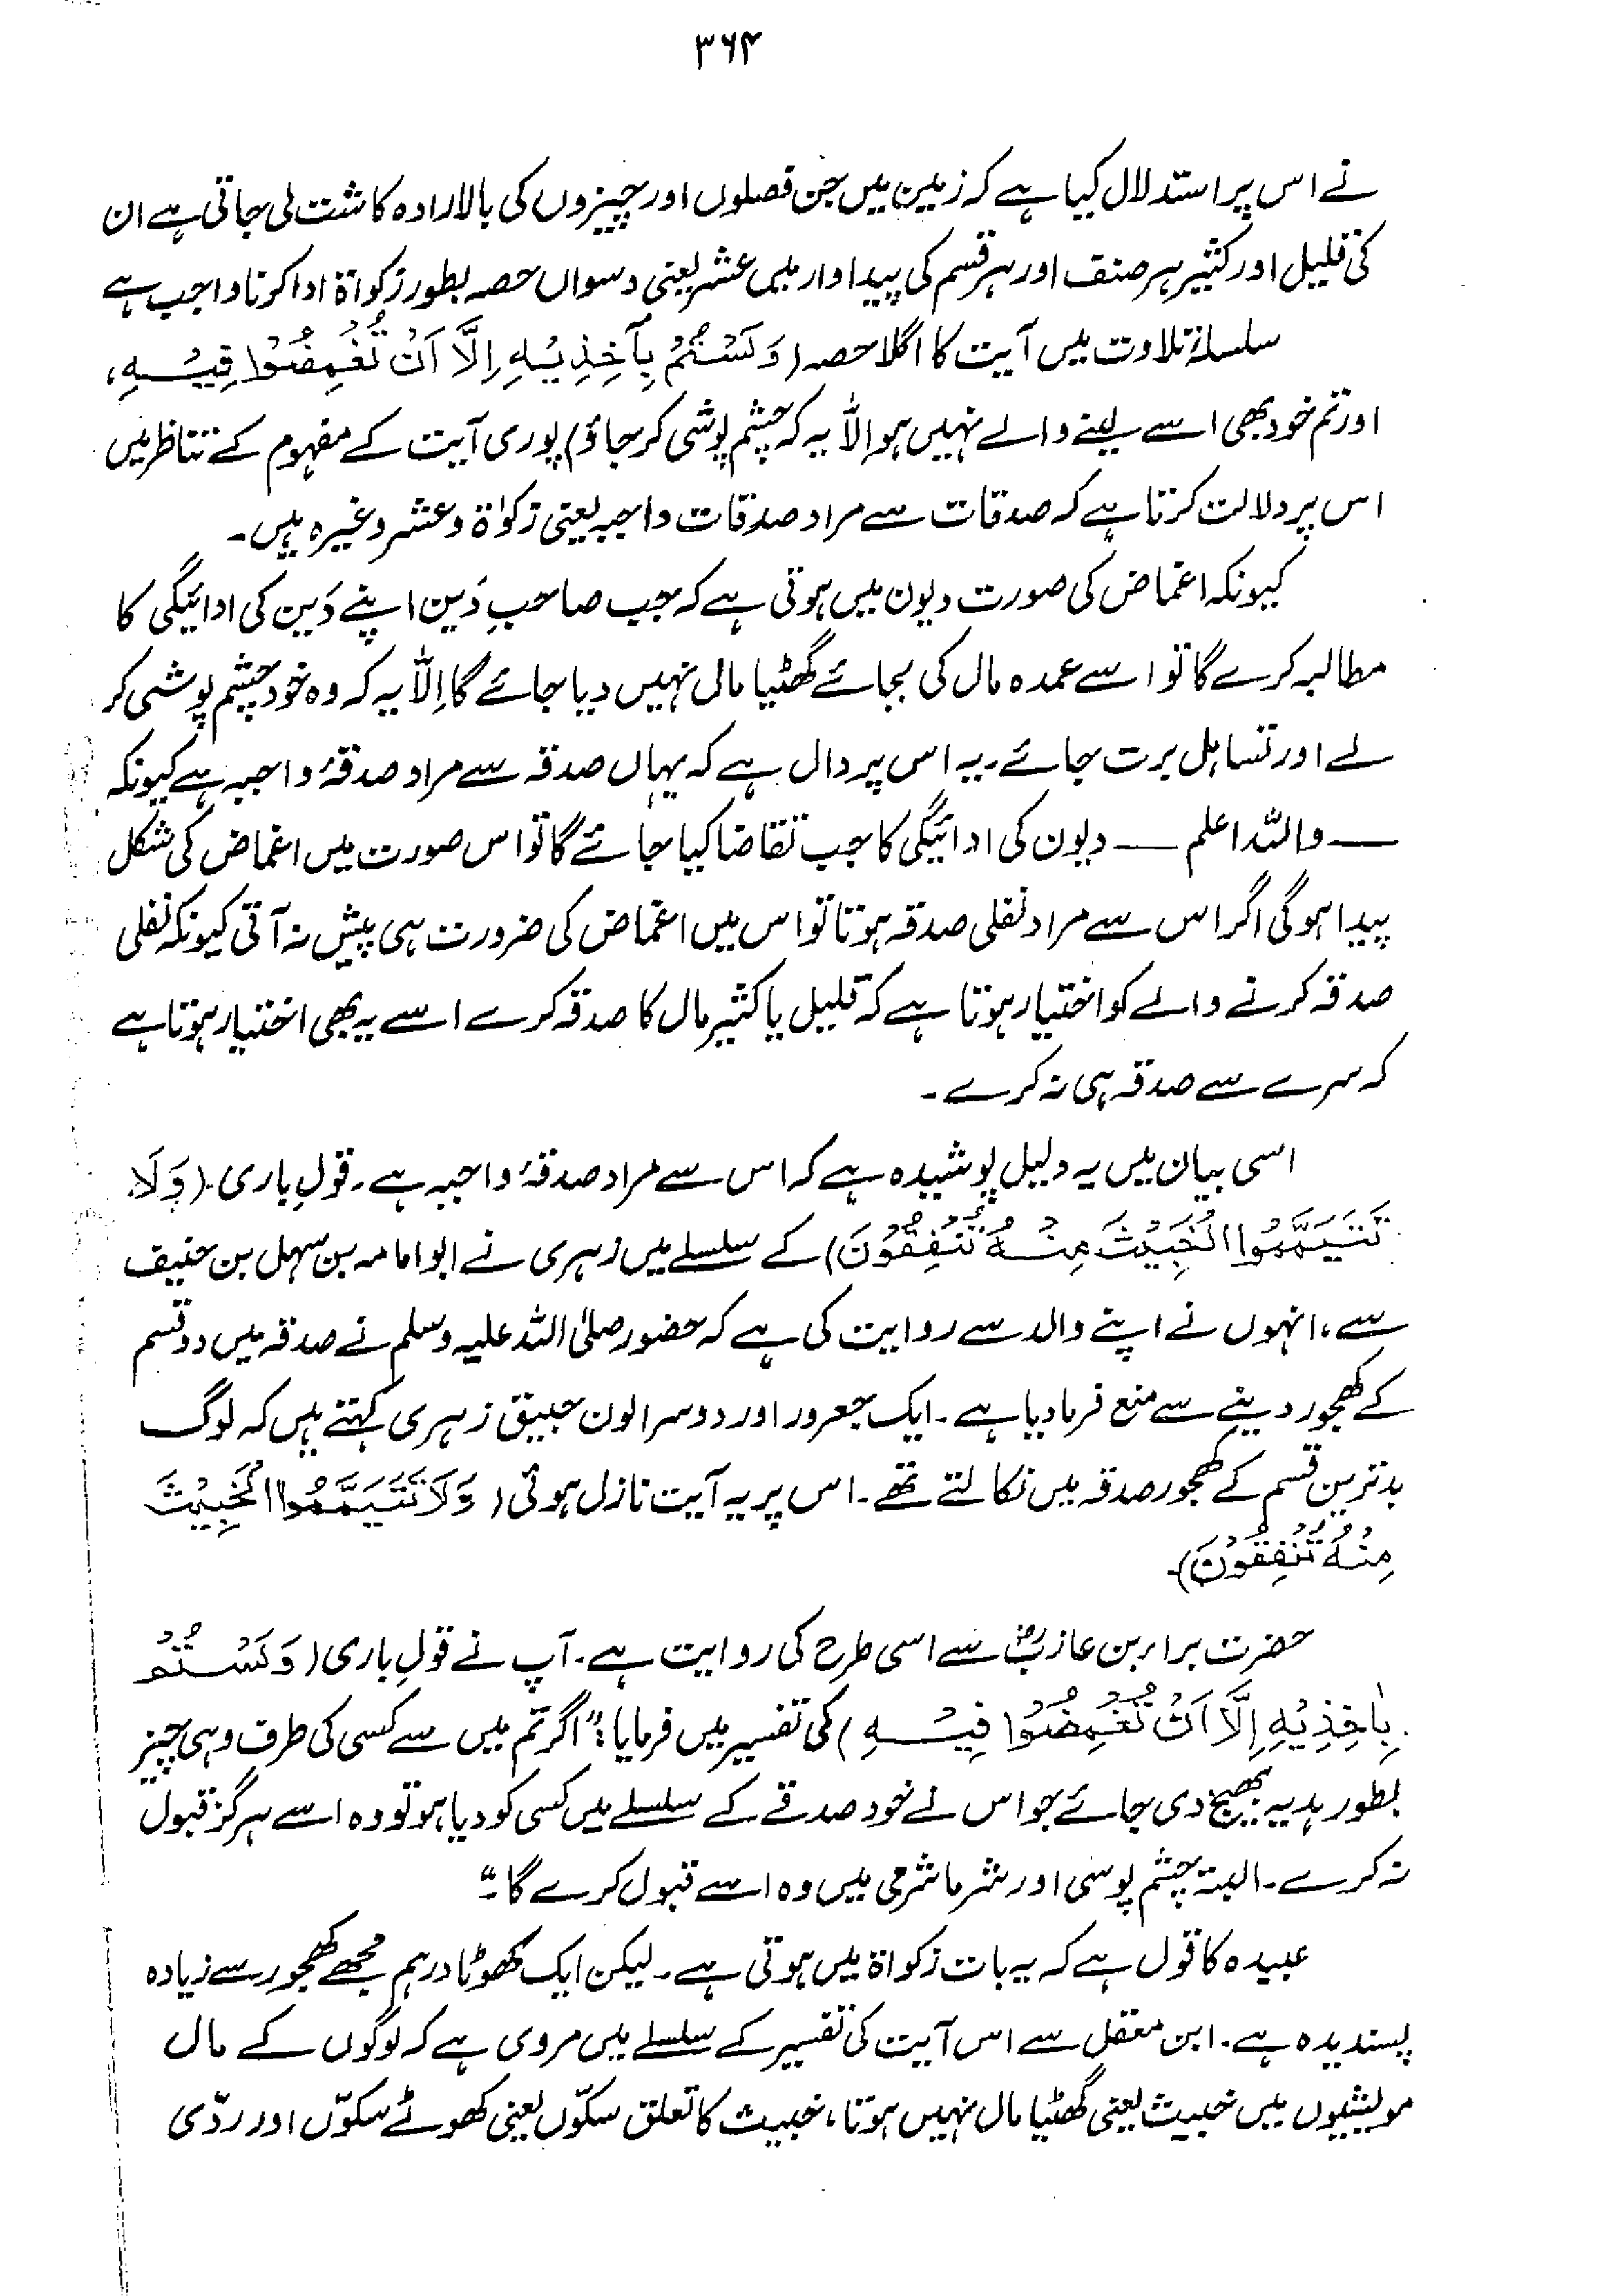 ۳۶۴
نے اس پر استدلال کیا ہے کہ زمین میں جن فصلوں اور چیزوں کی بالارادہ کاشت لی جاتی ہے ان
کی قلیل اور کثیر ہر صنف اور ہر قسم کی پیداوار میں عشر یعنی دسواں حصہ بطور زکواۃ ادا کرنا واجب ہے
سلسلۂ تلاوت میں آیت کا اگلا حصہ (وَلَسْتُمْ بِآخِذِیْہِ اِلَّا اَنْ تُغْمِضُوْا فِیْہِ،
اور تم خود بھی اسے لینے والے نہیں ہو اِلّا یہ کہ چشم پوشی کر جاؤ) پوری آیت کے مفہوم کے تناظر میں
اس پر دلالت کرتا ہے کہ صدقات سے مراد صدقات واجبہ یعنی زکواۃ و عشر وغیرہ ہیں۔
کیونکہ اغماض کی صورت دیون میں ہوتی ہے کہ جب صاحبِ دَین اپنے دَین کی ادائیگی کا
مطالبہ کرے گا تو اسے عمدہ مال کی بجائے گھٹیا مال نہیں دیا جائے گا اِلّا یہ کہ وہ خود چشم پوشی کر
لے اور تساہل برت جائے۔ یہ اس پر دال ہے کہ یہاں صدقہ سے مراد صدقۂ واجبہ ہے کیونکہ
— واللہ اعلم — دیون کی ادائیگی کا جب تقاضا کیا جائے گا تو اس صورت میں اغماض کی شکل
پیدا ہوگی اگر اس سے مراد نفلی صدقہ ہوتا تو اس میں اغماض کی ضرورت ہی پیش نہ آتی کیونکہ نفلی
صدقہ کرنے والے کو اختیار ہوتا ہے کہ قلیل یا کثیر مال کا صدقہ کرے اسے یہ بھی اختیار ہوتا ہے
کہ سرے سے صدقہ ہی نہ کرے۔
اسی بیان میں یہ دلیل پوشیدہ ہے کہ اس سے مراد صدقۂ واجبہ ہے۔ قولِ باری (وَلَا
تَتَیَمَّمُوا الْخَبِیْثَ مِنْہُ تُنْفِقُوْنَ) کے سلسلے میں زہری نے ابوامامہ بن سہل بن حنیف
سے، انہوں نے اپنے والد سے روایت کی ہے کہ حضور صلی اللہ علیہ وسلم نے صدقہ میں دو قسم
کے کھجور دینے سے منع فرما دیا ہے۔ ایک جعرور اور دوسرا لون حبیق زہری کہتے ہیں کہ لوگ
بدترین قسم کے کھجور صدقہ میں نکالتے تھے۔ اس پر یہ آیت نازل ہوئی (وَلَا تَتَیَمَّمُوا الْخَبِیْثَ
مِنْہُ تُنْفِقُوْنَ)۔
حضرت براء بن عازبؓ سے اسی طرح کی روایت ہے۔ آپ نے قولِ باری (وَلَسْتُمْ
بِاٰخِذِیْہِ اِلَّا اَنْ تُغْمِضُوْا فِیْہِ) کی تفسیر میں فرمایا: "اگر تم میں سے کسی کی طرف وہی چیز
بطور ہدیہ بھیج دی جائے جو اس نے خود صدقے کے سلسلے میں کسی کو دیا ہو تو وہ اسے ہرگز قبول
نہ کرے۔ البتہ چشم پوسی اور شرما شرمی میں وہ اسے قبول کرے گا۔"
عبیدہ کا قول ہے کہ یہ بات زکواۃ میں ہوتی ہے۔ لیکن ایک کھوٹا درہم مجھے کھجور سے زیادہ
پسندیدہ ہے۔ ابن معقل سے اس آیت کی تفسیر کے سلسلے میں مروی ہے کہ لوگوں کے مال
مویشیوں میں خبیث یعنی گھٹیا مال نہیں ہوتا، خبیث کا تعلق سکوّں یعنی کھوٹے سکوّں اور ردّی